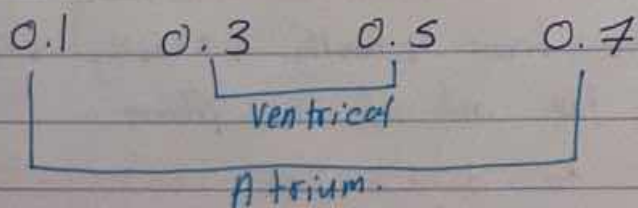 0.1 0.3 0.5 0.7
ventrical
Atrium.